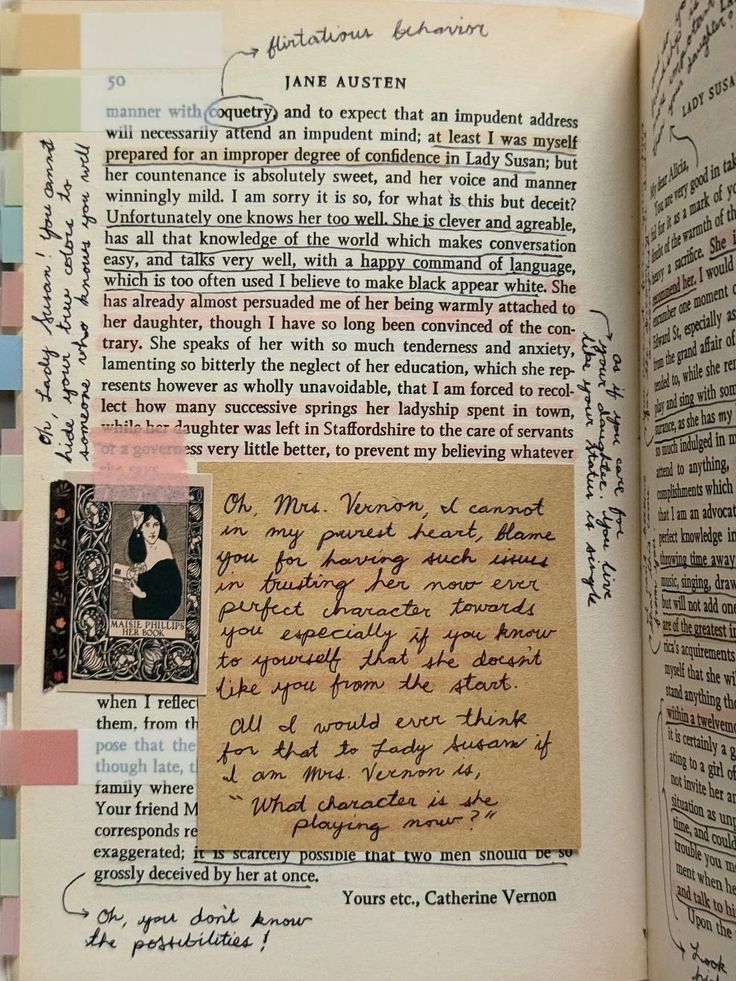 flirtatious behavior
50
JANE AUSTEN
manner with coquetry, and to expect that an impudent address
will necessarily attend an impudent mind; at least I was myself
prepared for an improper degree of confidence in Lady Susan; but
her countenance is absolutely sweet, and her voice and manner
winningly mild. I am sorry it is so, for what is this but deceit?
Unfortunately one knows her too well. She is clever and agreeable,
has all that knowledge of the world which makes conversation
easy, and talks very well, with a happy command of language,
which is too often used I believe to make black appear white. She
has already almost persuaded me of her being warmly attached to
her daughter, though I have so long been convinced of the con-
trary. She speaks of her with so much tenderness and anxiety,
lamenting so bitterly the neglect of her education, which she rep-
resents however as wholly unavoidable, that I am forced to recol-
lect how many successive springs her ladyship spent in town,
while her daughter was left in Staffordshire to the care of servants
or a governess very little better, to prevent my believing whatever
she says.
Oh, Lady Susan! You cannot
hide your true colors to
someone who knows you well
as if you care for
your daughter you live
like your status is single
MAISIE PHILLIPS
HER BOOK
Oh, Mrs. Vernon, I cannot
in my purest heart, blame
you for having such issues
in trusting her now ever
perfect character towards
you especially if you know
to yourself that she doesn't
like you from the start.
All I would ever think
for that to Lady Susan if
I am Mrs. Vernon is,
"What character is she
playing now?"
when I reflec
them, from th
pose that the
though late, t
family where
Your friend M
corresponds re
exaggerated; it is scarcely possible that two men should be so
grossly deceived by her at once.
Yours etc., Catherine Vernon
Oh, you don't know
the possibilities!
LADY SUSA
My dear Alicia,
You are very good in tak
for it as a mark of yo
of the warmth of th
heavy a sacrifice. She i
recommend her. I would
encumber one moment o
Edward St, especially as
from the grand affair of
tended to, while she re
play and sing with som
surance, as she has my
so much indulged in m
attend to anything,
complishments which
that I am an advocat
perfect knowledge in
throwing time away
music, singing, draw
but will not add one
are of the greatest in
rica's acquirements
myself that she wil
stand anything th
within a twelvemo
it is certainly a g
ating to a girl of
not invite her an
situation as unp
time, and could
trouble you m
ment when he
and talk to hi
Upon the
Look